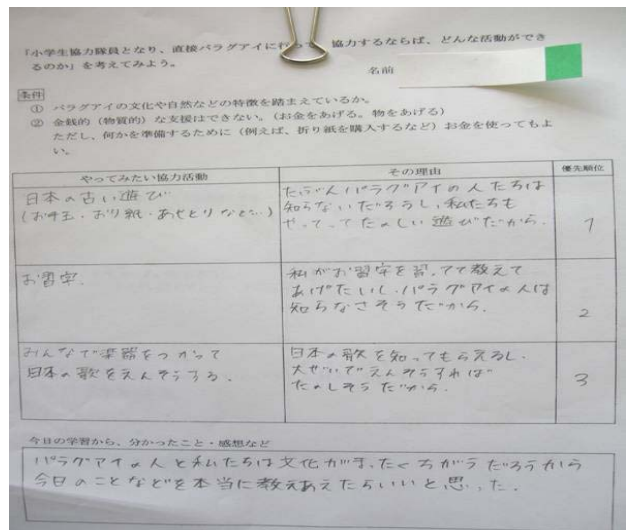 「小学生協力隊員となり、直接パラグアイに行って、協力するならば、どんな活動ができ
るのか」を考えてみよう。
名前
条件
① パラグアイの文化や自然などの特徴を踏まえているか。
② 金銭的（物質的）な支援はできない。（お金をあげる。物をあげる）
ただし、何かを準備するために（例えば、折り紙を購入するなど）お金を使ってもよ
い。
やってみたい協力活動
その理由
優先順位
日本の古い遊び
(お手玉・おり紙・あやとりなど…)
たぶんパラグアイの人たちは
知らないだろうし、私たちも
やってってたのしい遊びだから。
1
お習字。
私がお習字を習ってて教えて
あげたいし、パラグアイの人は
知らなさそうだから。
2
みんなで楽器をつかって
日本の歌をえんそうする。
日本の歌を知ってもらえるし、
大ぜいでえんそうすれば
たのしそうだから。
3
今日の学習から、分かったこと・感想など
パラグアイの人と私たちは文化がまったくちがうだろうから
今日のことなどを本当に教えあえたらいいと思った。